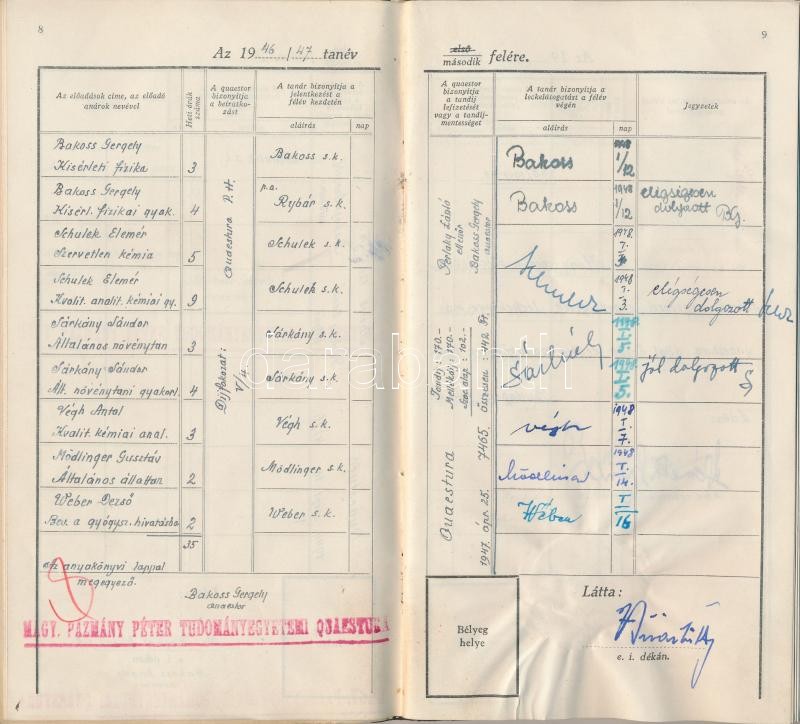 8
Az 1946/47 tanév
Az előadások címe, az előadó
anárok nevével
Heti órák
száma
A quaestor
bizonyítja
a beiratko-
zást
A tanár bizonyítja a
jelentkezést a
félév kezdetén
aláírás
nap
Bakoss Gergely
Kisérleti fizika 3
Bakoss s.k.
Bakoss Gergely
Kisérl. fizikai gyak. 4
p.a.
Rybár s.k.
Schulek Elemér
Szervetlen kémia 5
Schulek s.k.
Schulek Elemér
Kvalit. analit. kémiai gy. 9
Schulek s.k.
Sárkány Sándor
Általános növénytan 3
Sárkány s.k.
Sárkány Sándor
Ált. növénytani gyakorl. 4
Sárkány s.k.
Végh Antal
Kvalit. kémiai anal. 3
Végh s.k.
Mödlinger Gusztáv
Általános állattan 2
Mödlinger s.k.
Weber Dezső
Bev. a gyógysz. hivatásba 2
Weber s.k.
35
Quaestura P.H.
Díjfokozat:
V/4
Az anyakönyvi lappal
megegyező.
Bakoss Gergely
quaestor
MAGY. PÁZMÁNY PÉTER TUDOMÁNYEGYETEMI QUAESTURA
9
első
második felére.
A quaestor
bizonyítja
a tandíj
lefizetését
vagy a tandíj-
mentességet
A tanár bizonyítja a
leckelátogatást a félév
végén
aláírás
nap
Jegyzetek
Perlaky László
ellenőr
Bakoss Gergely
quaestor
Tandíj: 170.-
Mellékdíj: 170.-
Szoc. alap: 102.-
Összesen 442 Ft.
Quaestura
1947. ápr. 25. 7465.
Bakoss
1/12
Bakoss
1948
1/12
elégségesen
dolgozott
1948.
I.
3.
1948
I.
3.
elégségesen
dolgozott
1948.
I.
5.
1948.
I.
5.
jól dolgozott
végh
1948
I.
7.
1948
I.
14.
Wéber
I
16
Bélyeg
helye
Látta:
e. i. dékán.
darabanth